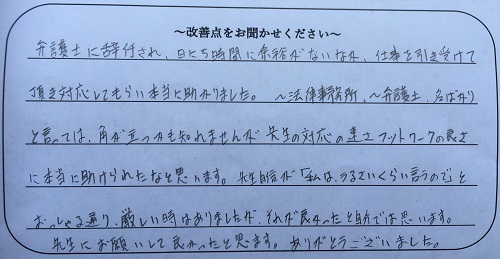 ～改善点をお聞かせください～
弁護士に辞任され、日にち時間に余裕がないなか、仕事を引き受けて
頂き対応してもらい本当に助かりました。 ～法律事務所、～弁護士、名ばかり
と言っては、角が立つかも知れませんが先生の対応の速さフットワークの良さ
に本当に助けられたなと思います。先生自信が「私は、うるさいくらい言うので」と
おっしゃる通り、厳しい時はありましたが、それが良かったと自分では思います。
先生にお願いして良かったと思ます。ありがとうございました。